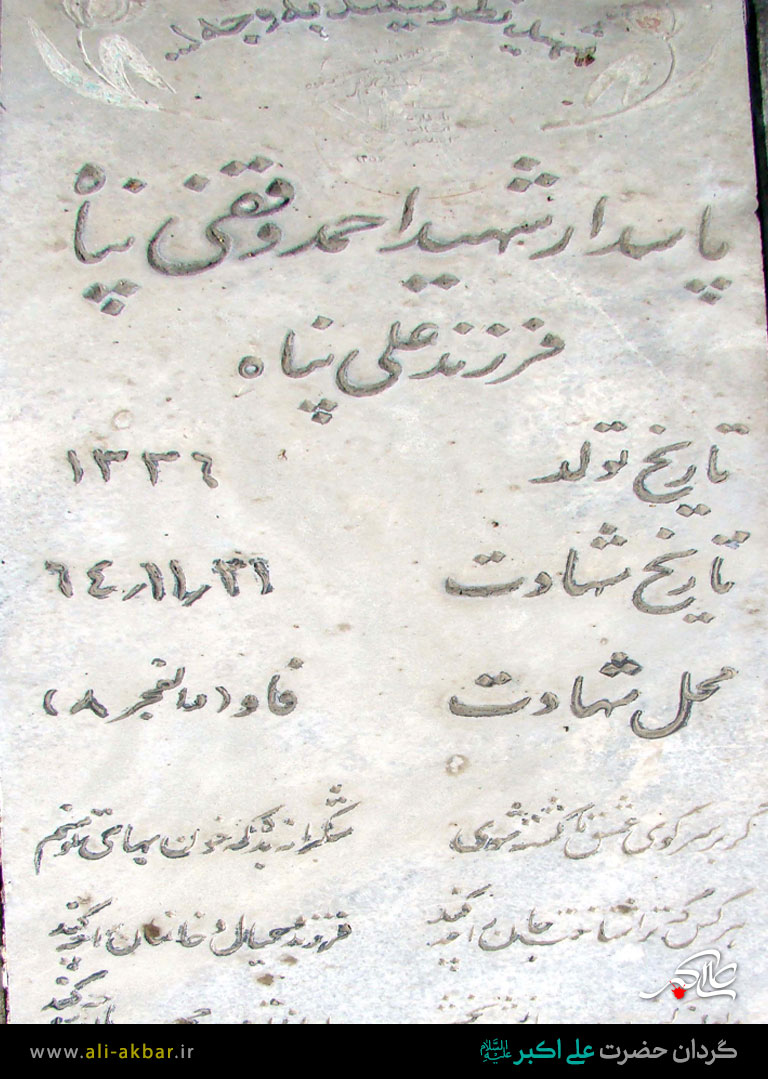 شهید نظر میکند به وجه الله
پاسدار شهید احمد وقفی پناه
فرزند علی پناه
تاریخ تولد ۱۳۳۶
تاریخ شهادت ۶۴٫۱۱٫۲۱
محل شهادت فاو (والفجر ۸)
گر بر سر کوی عشق ما کشته شوی شکرانه بده که خون بهای تو منم
هرکس که ترا شناخت جان را چه کند فرزند و عیال و خانمان را چه کند
علی اکبر
گردان حضرت علی اکبر علیه السلام
www.ali-akbar.ir